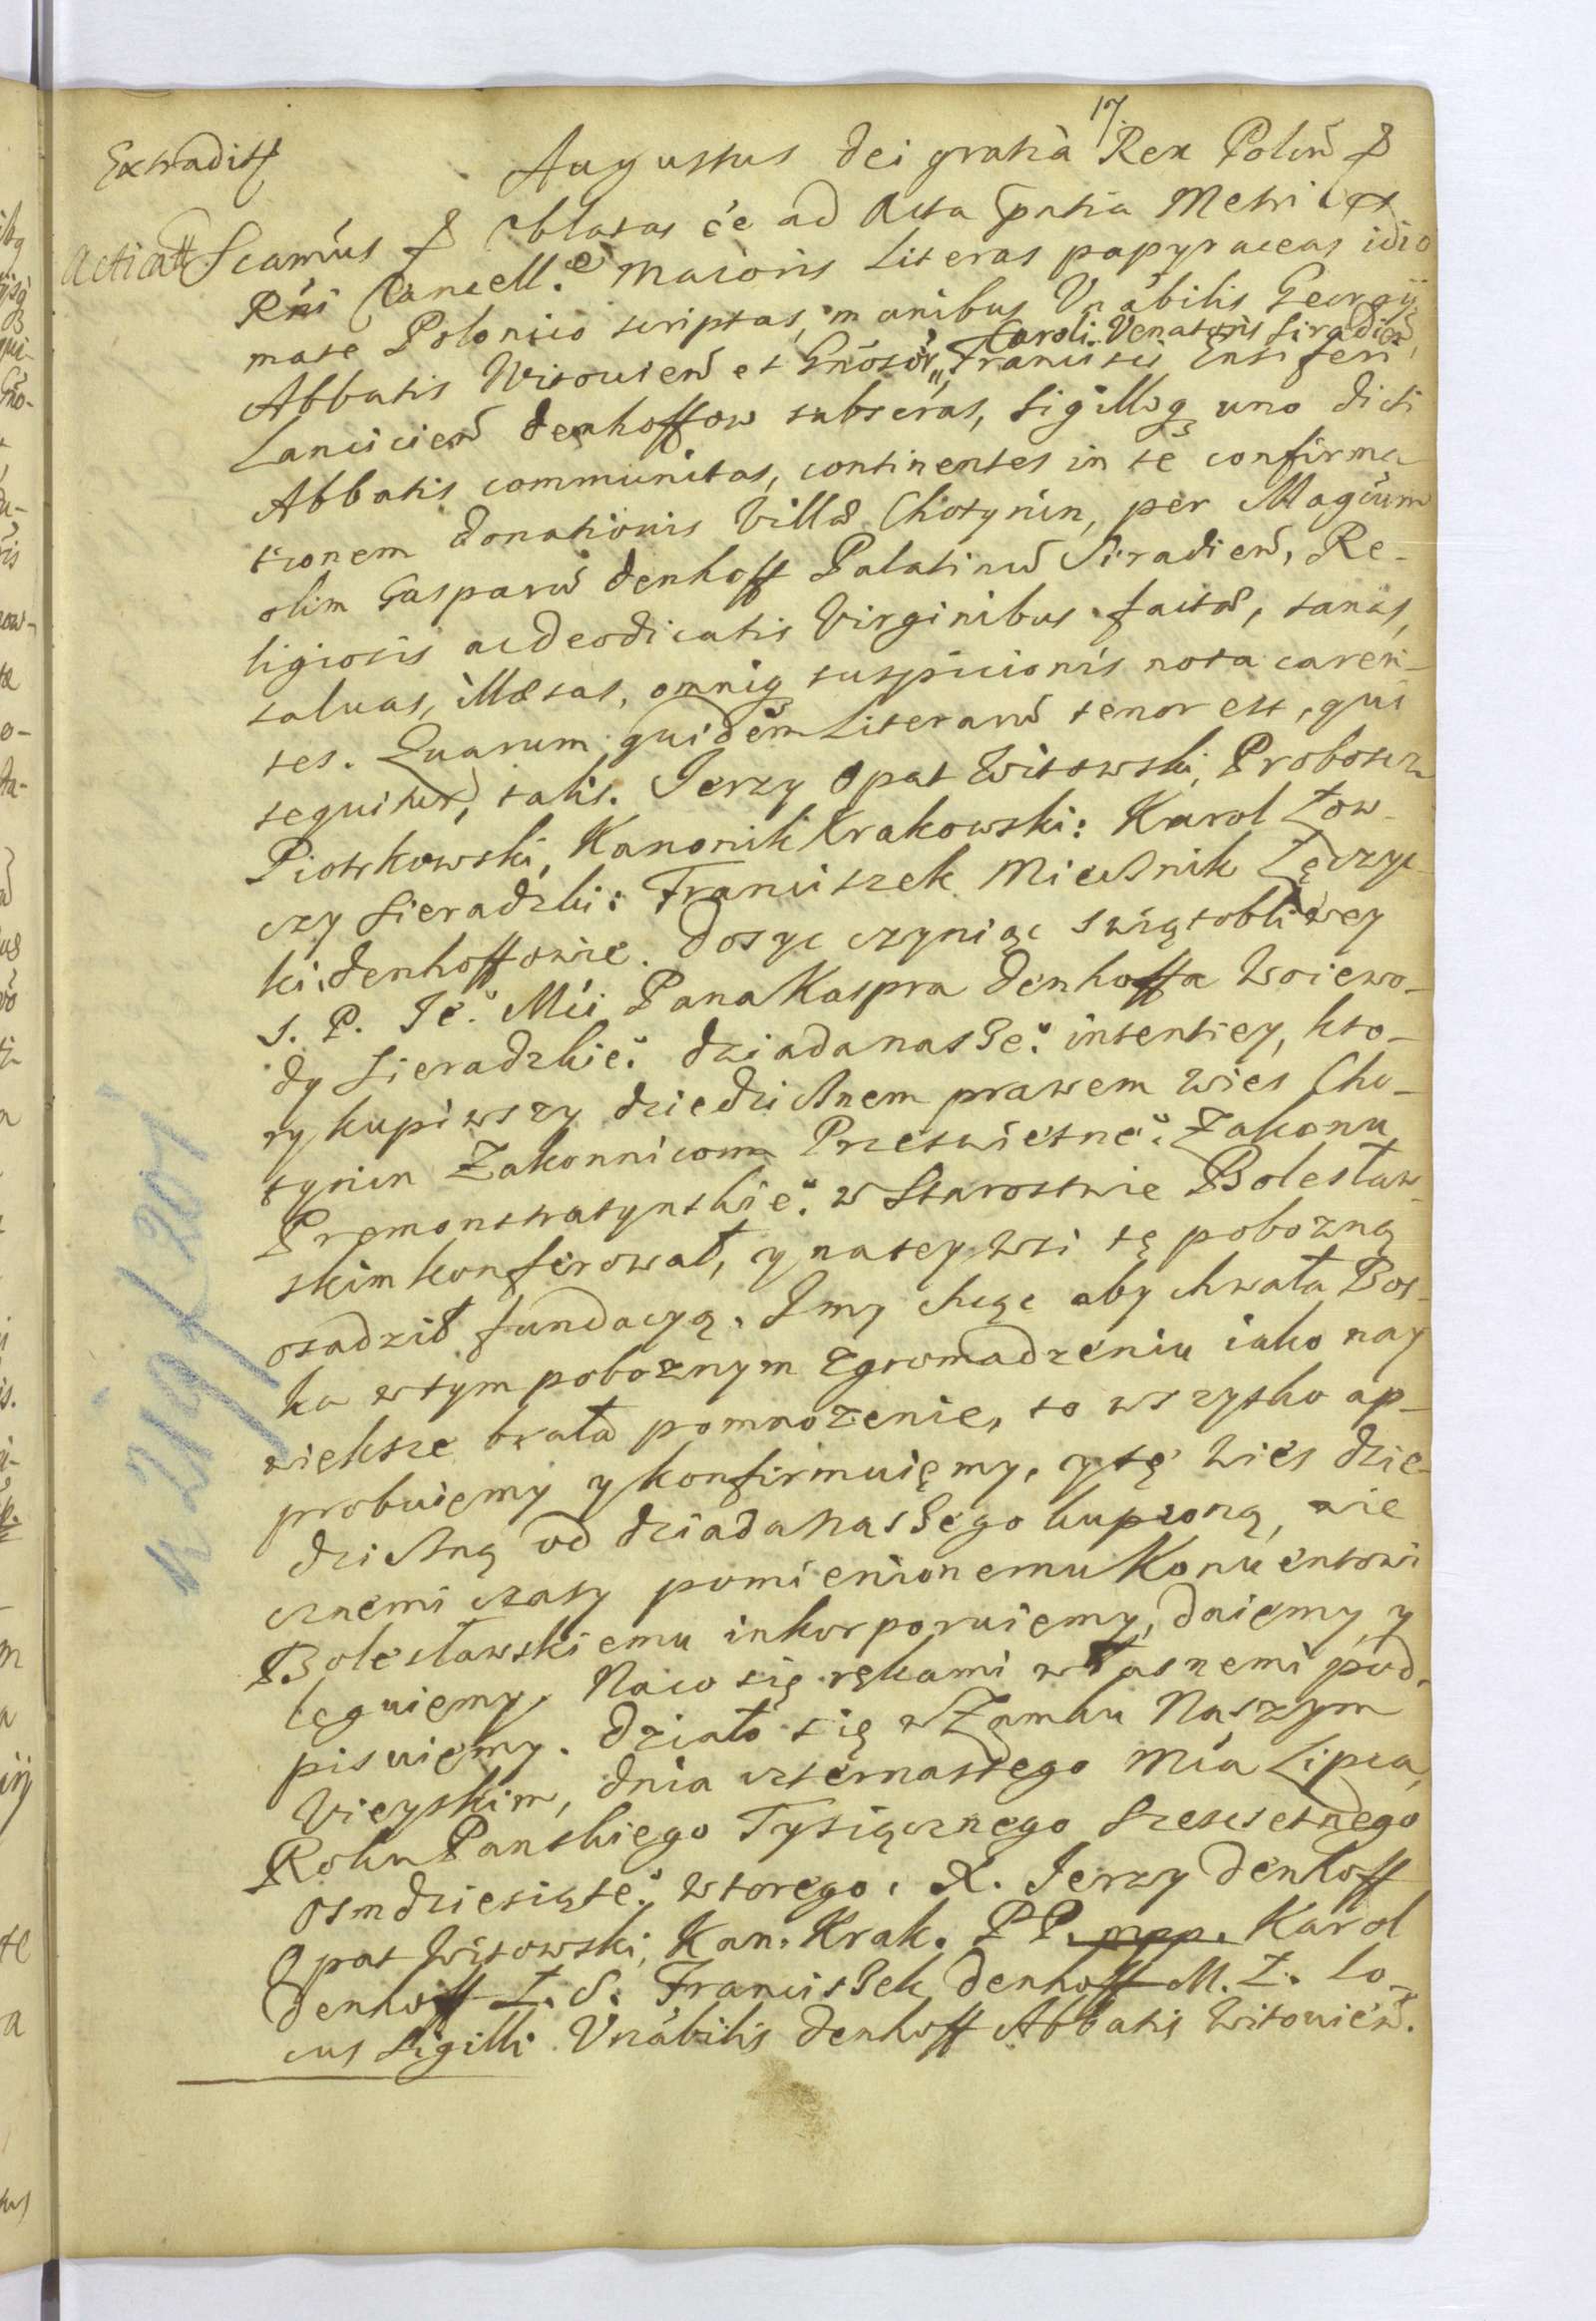 17.
Extradit
Augustus Dei gratia Rex Polon &
Acticat Scamus & Oblatas ee ad Acta pntia Metri
Rni Cancell.e Maioris Literas papyraceas idio
mate Polonico scriptas, manibus Vnabilis Georgij
Caroli Venatoris Siradien,
Abbatis Witouien et Gnosor Francisci Ensiferi
Lancicien Denhoffow subscras, sigilloq uno dicti
Abbatis communitas, continentes in se confirma
tionem donationis Villae Chotynin, per Magcum
olim Gasparu Denhoff Palatinu Siradien, Re-
ligiosis ac Deo dicatis Virginibus factae, sanas,
saluas, illaesas, omniq suspicionis nota caren-
tes. Quarum quidem Literaru tenor est, qui
sequitur, talis. Jerzy Opat Witowski, Proboszcz
Piotrkowski, Kanonik Krakowski: Karol Łow-
czy Sieradzki: Franciszek Miecznik Łęczyc
ki, Denhoffowie. Dosyc czyniąc swiątobliwey
s. P. Je: Mci Pana Kaspra Denhoffa Woiewo-
dy Sieradzkie: dziada nasze: intentiey, kto-
ry kupiwszy dziedzicznem prawem wies Cho-
tynin Zakonnicom Przeswietne: Zakonu
Premonstratynskie: w Starostwie Bolesław-
skim konferował, y na tey wsi tę pobozną
osadził fundacyą. Y my chcąc aby chwała Bos-
ka w tym poboznym zgromadzeniu iako nay
wieksze brała pomnozenie, to wszytko ap-
probuiemy y konfirmuięmy, y tę wies dzie-
dziczną od dziada naszego kupioną, wie
cznemi czasy pomienionemu Konuentowi
Bolesławskiemu inkorporuiemy, daięmy, y
leguięmy, Na co się rękami własnemi pod-
pisuięmy. Działo się w Zamku Naszym
Vieyskim, dnia czternastego Mca Lipca,
Roku Panskiego Tysiącznego Szescsetnego
Osmdziesiąte: wtorego. X. Jerzy Denhoff
Opat Witowski, Kan. Krak. PP. mpp. Karol
Denhoff Ł. S. Franciszek Denhoff M. Ł. Lo-
cus Sigilli Vnabilis Denhoff Abbatis Witouien.